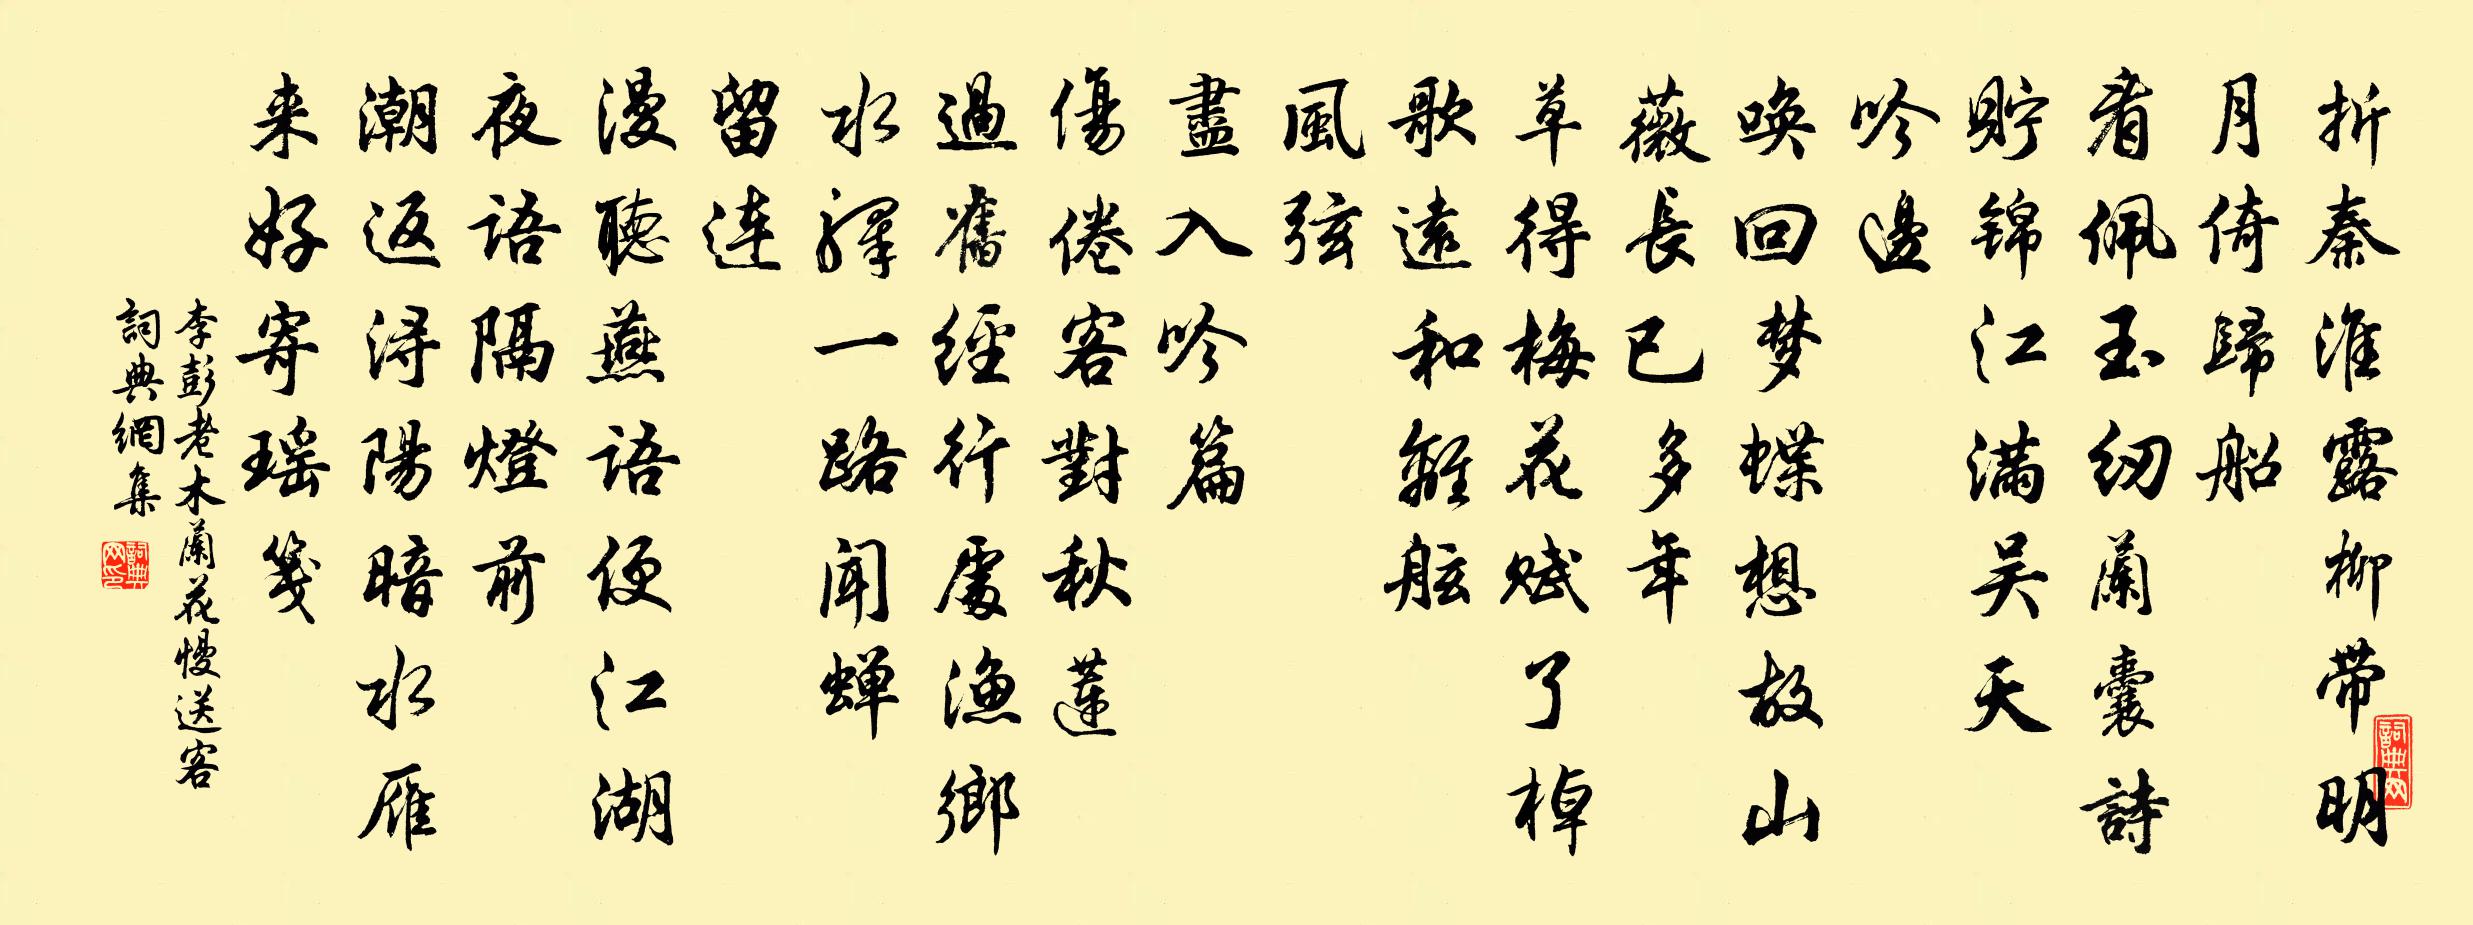 折秦淮露柳带明
月倚歸船
看佩玉紉蘭囊詩
貯锦江满吴天
吟邊
唤回梦蝶想故山
薇長已多年
草得梅花赋了棹
歌遠和離舷
風弦
盡入吟篇
傷倦客對秋蓮
過舊經行處漁鄉
水驛一路闻蝉
留連
漫聽燕語便江湖
夜語隔燈前
潮返浔陽暗水雁
来好寄瑶笺
李彭老木蘭花慢送客
詞典網集
詞典网印
詞典网